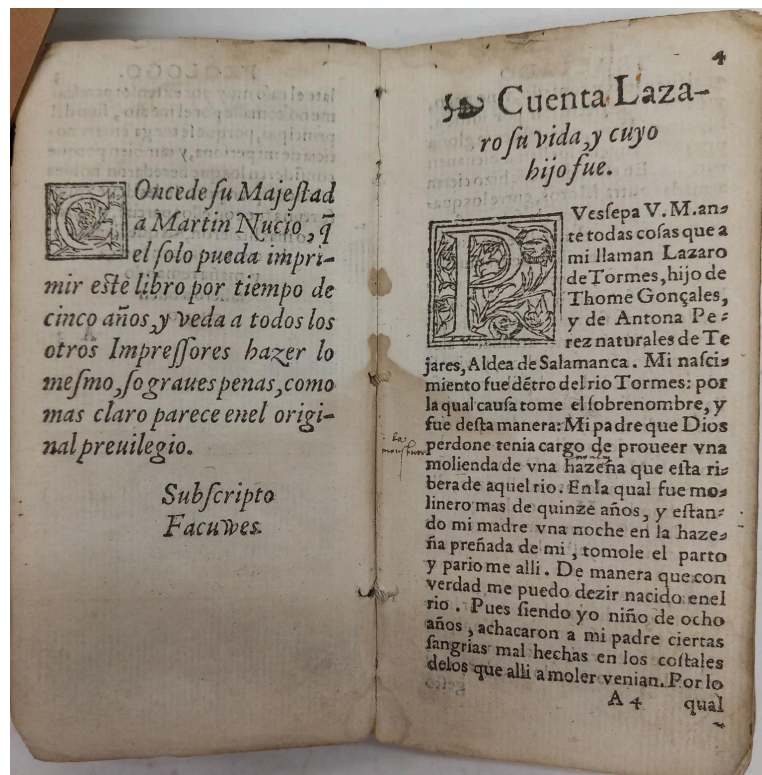 COncede su Majestad
a Martin Nucio, q̃
el solo pueda impri-
mir este libro por tiempo de
cinco años, y veda a todos los
otros Impressores hazer lo
mesmo, so graues penas, como
mas claro parece enel origi-
nal preuilegio.
Subscripto
Facuwes.
4
Cuenta Laza-
ro su vida, y cuyo
hijo fue.
PVes sepa V. M. an-
te todas cosas que a
mi llaman Lazaro
de Tormes, hijo de
Thome Gonçales,
y de Antona Pe-
rez naturales de Te
jares, Aldea de Salamanca. Mi nasci-
miento fue dẽtro del rio Tormes: por
la qual causa tome el sobrenombre, y
fue desta manera: Mi padre que Dios
perdone tenia cargo de proueer vna
molienda de vna hazeña que esta ri-
bera de aquel rio. En la qual fue mo-
linero mas de quinze años, y estan-
do mi madre vna noche en la haze-
ña preñada de mi, tomole el parto
y pariome alli. De manera que con
verdad me puedo dezir nacido enel
rio. Pues siendo yo niño de ocho
años, achacaron a mi padre ciertas
sangrias mal hechas en los costales
delos que alli a moler venian. Por lo
A 4 qual